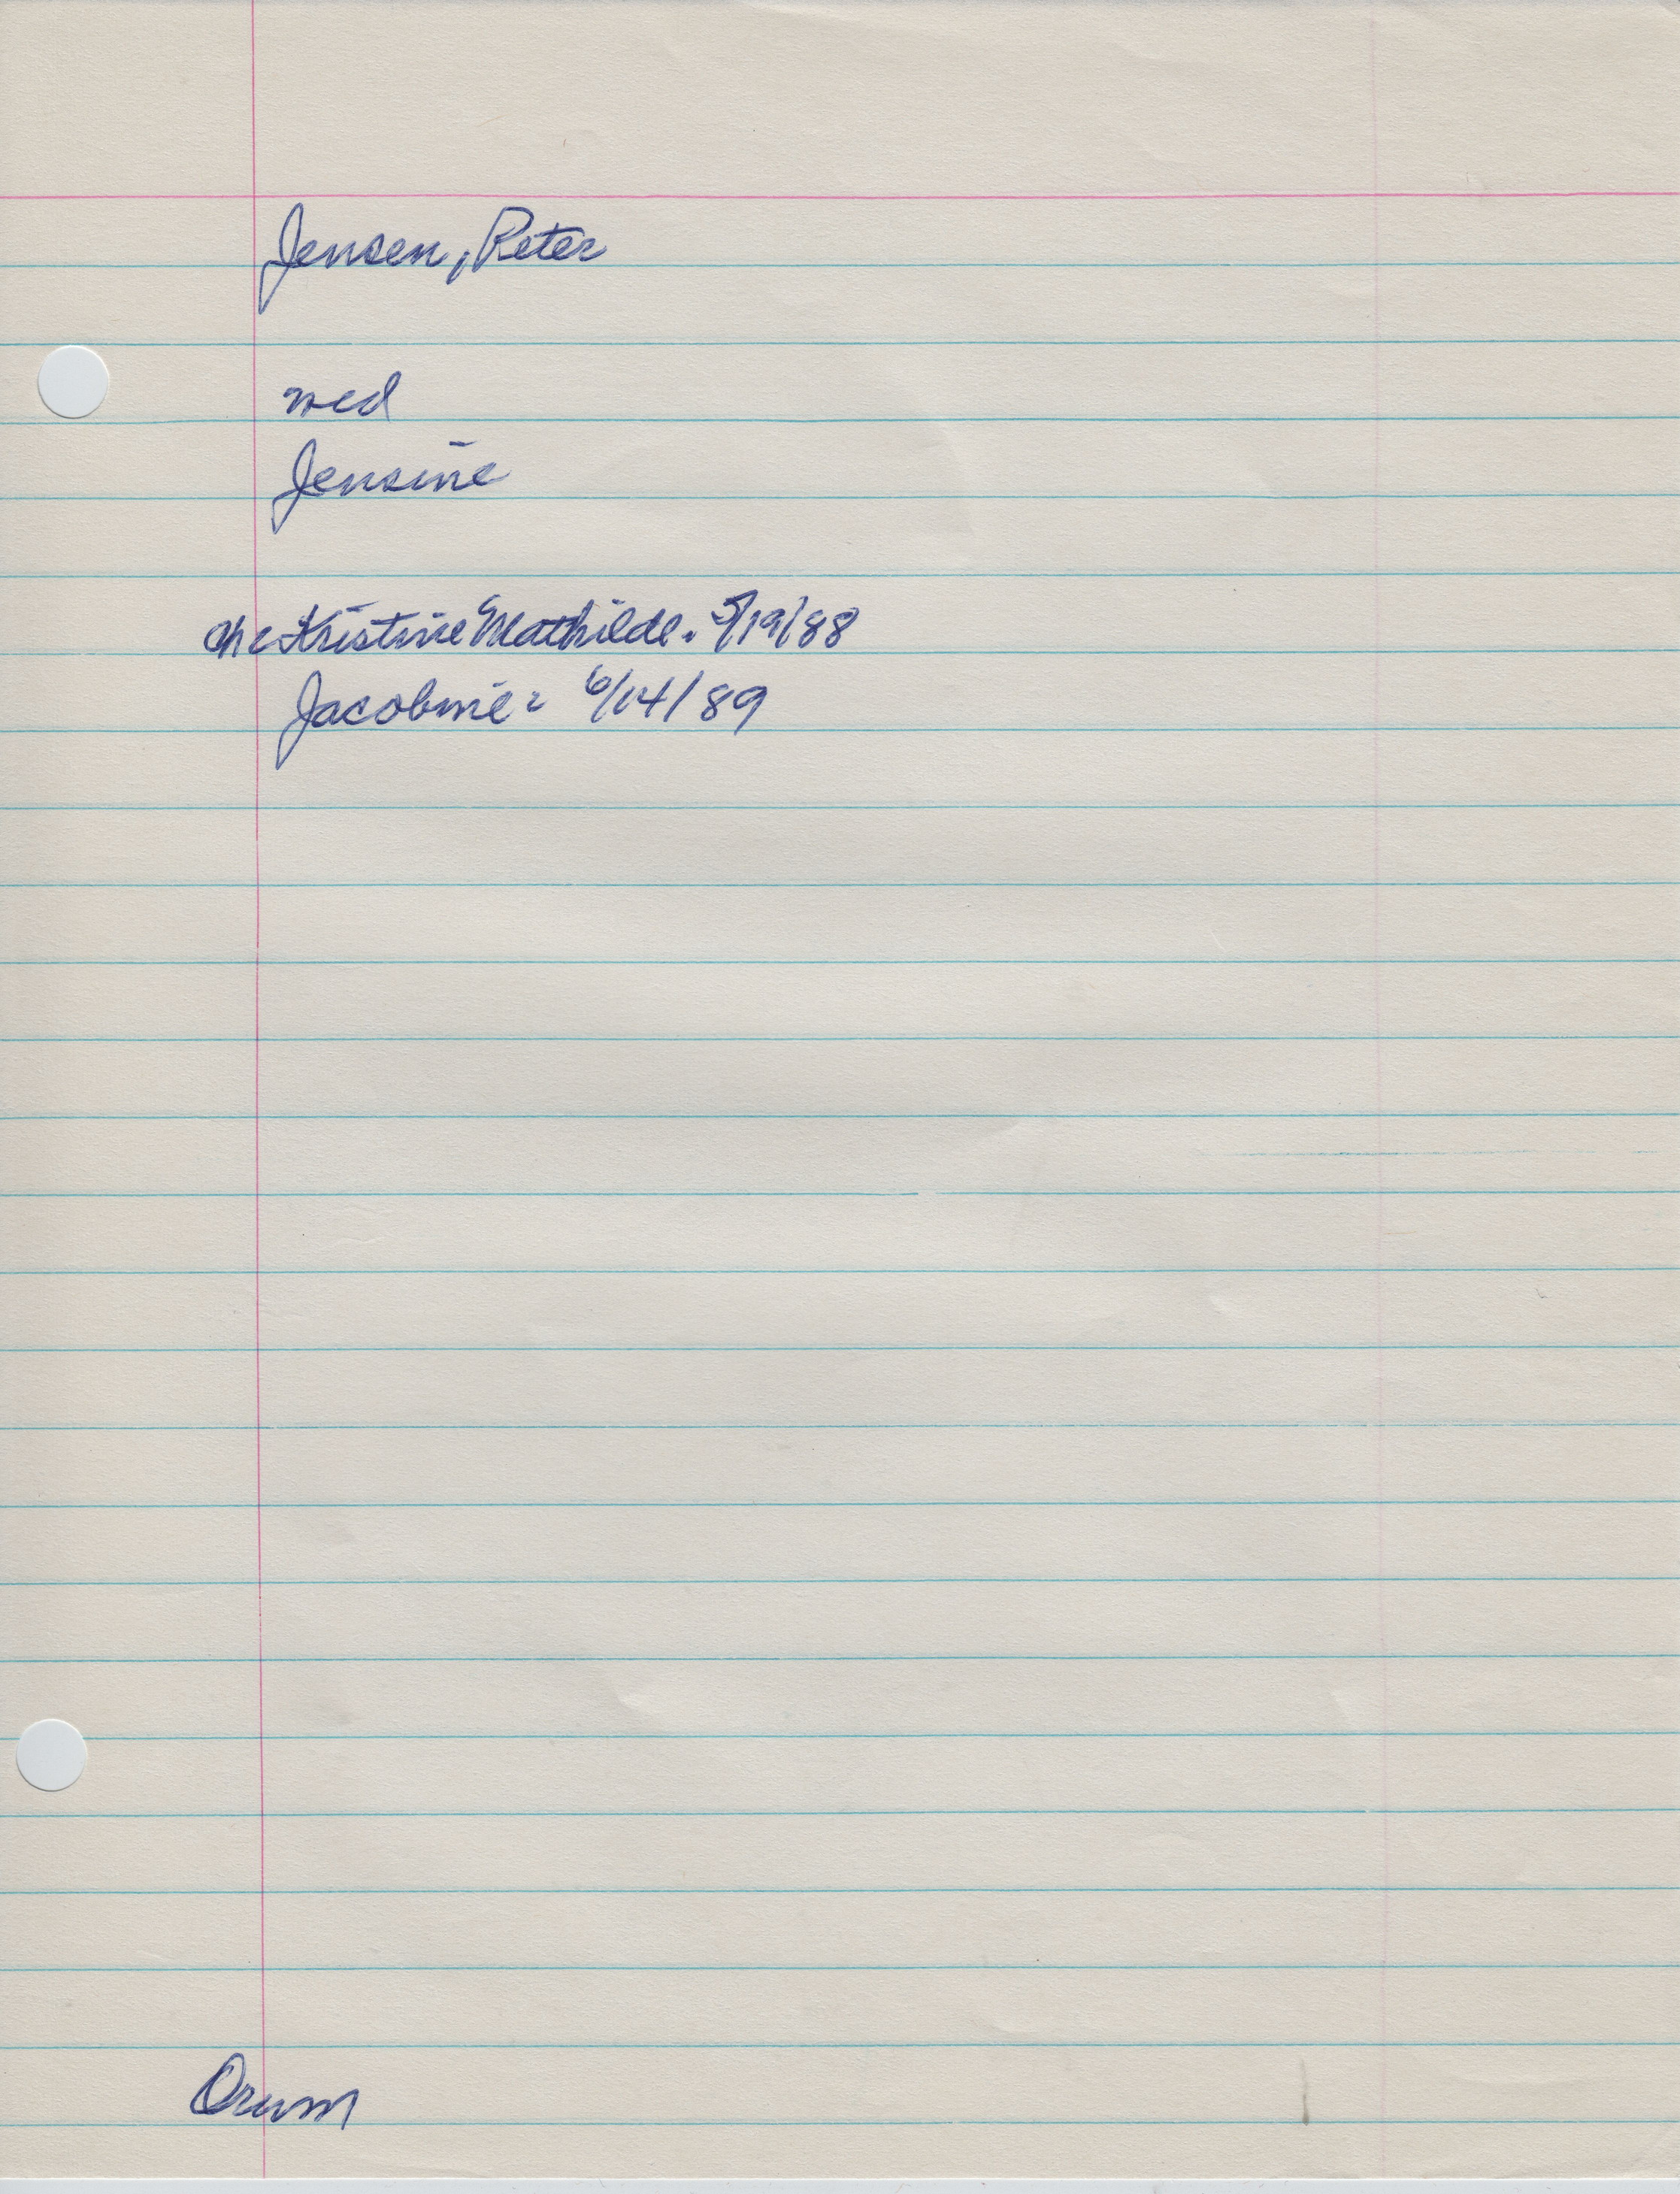 Jensen, Peter
wed
Jensine
ch Kristine Mathilde. 5/19/88
Jacobine: 6/14/89
Orum